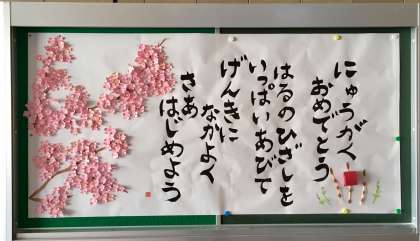 にゅうがく
おめでとう
はるのひざしを
いっぱいあびて
げんきに
なかよく
さあ
はじめよう